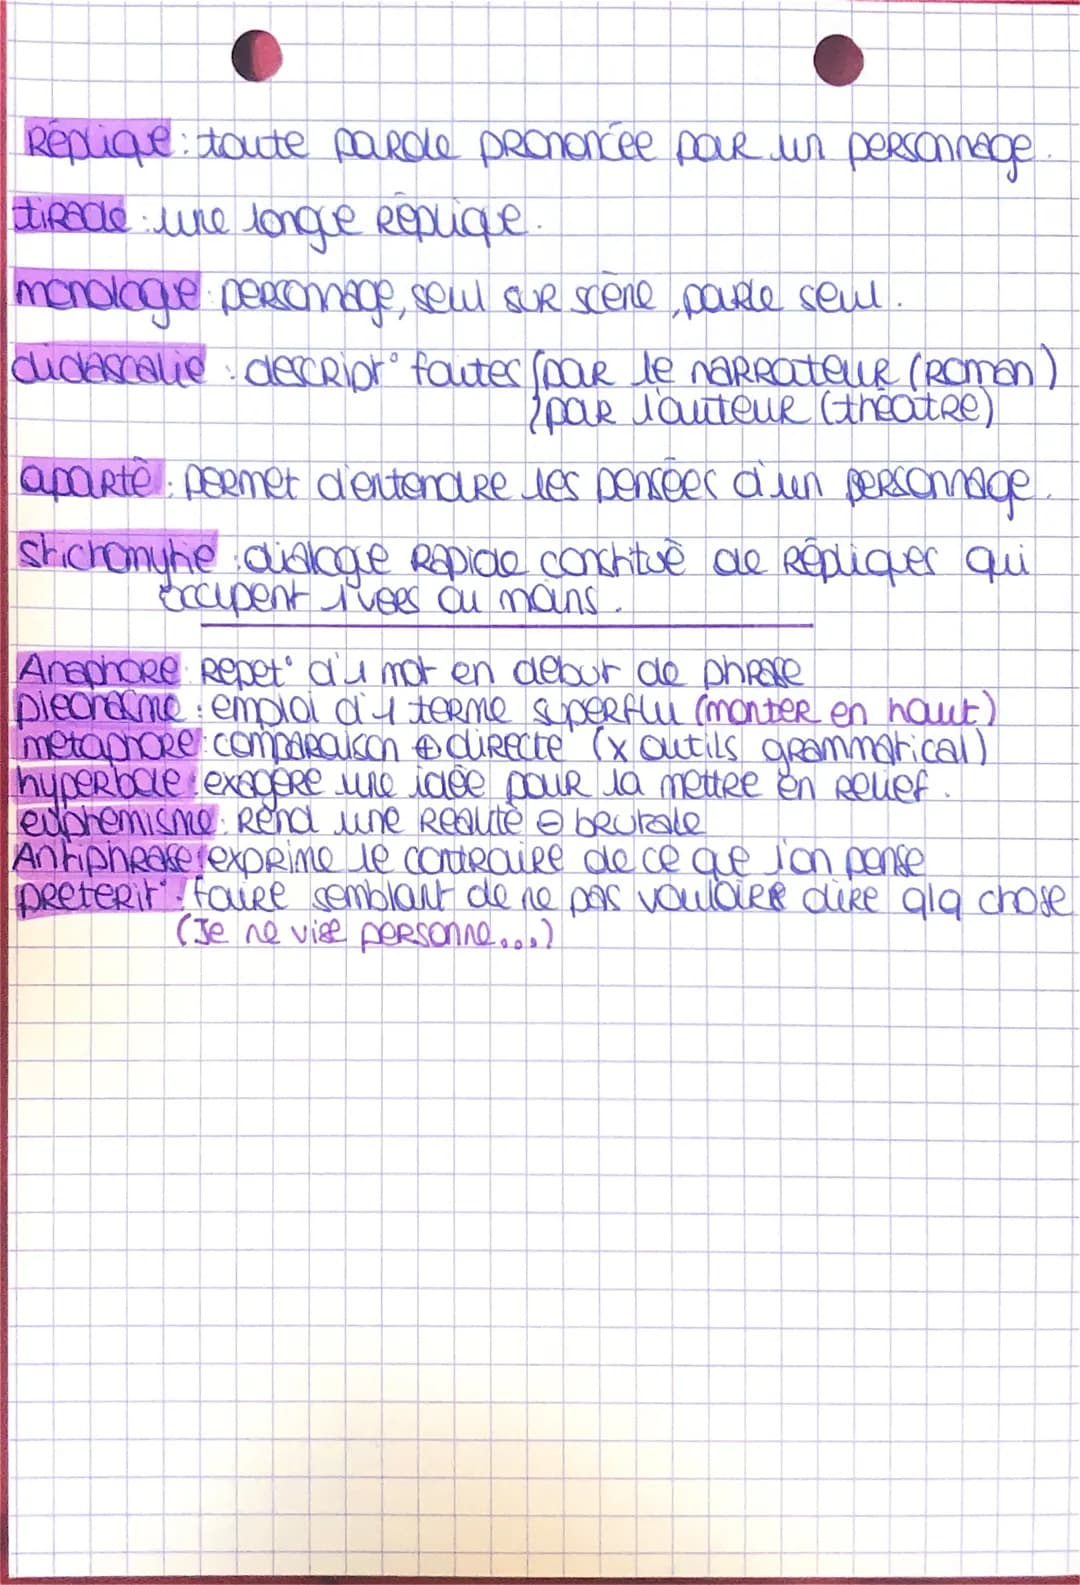 Réplique : toute parole prononcée par un personnage.
tirade : une longue réplique.
monologue : personnage, seul sur scène, parle seul.
didascalie : descript° faites { par le narrateur (roman)
par l'auteur (théâtre)
aparté : permet d'entendre les pensées d'un personnage.
stichomytie : dialoge rapide constitué de répliques qui
occupent 1 vers ou moins.
Anaphore : Repet° d'1 mot en debut de phrase
pleonasme : emploi d'1 terme superflu (monter en haut)
metaphore : comparaison ⊕ directe (x outils grammatical)
hyperbole : exagère une idée pour la mettre en relief.
euphemisme : Rend une realité ⊖ brutale
Antiphrase : exprime le contraire de ce que l'on pense
preterit° : faire semblant de ne pas vouloire dire qlq chose
(Je ne vise personne...)